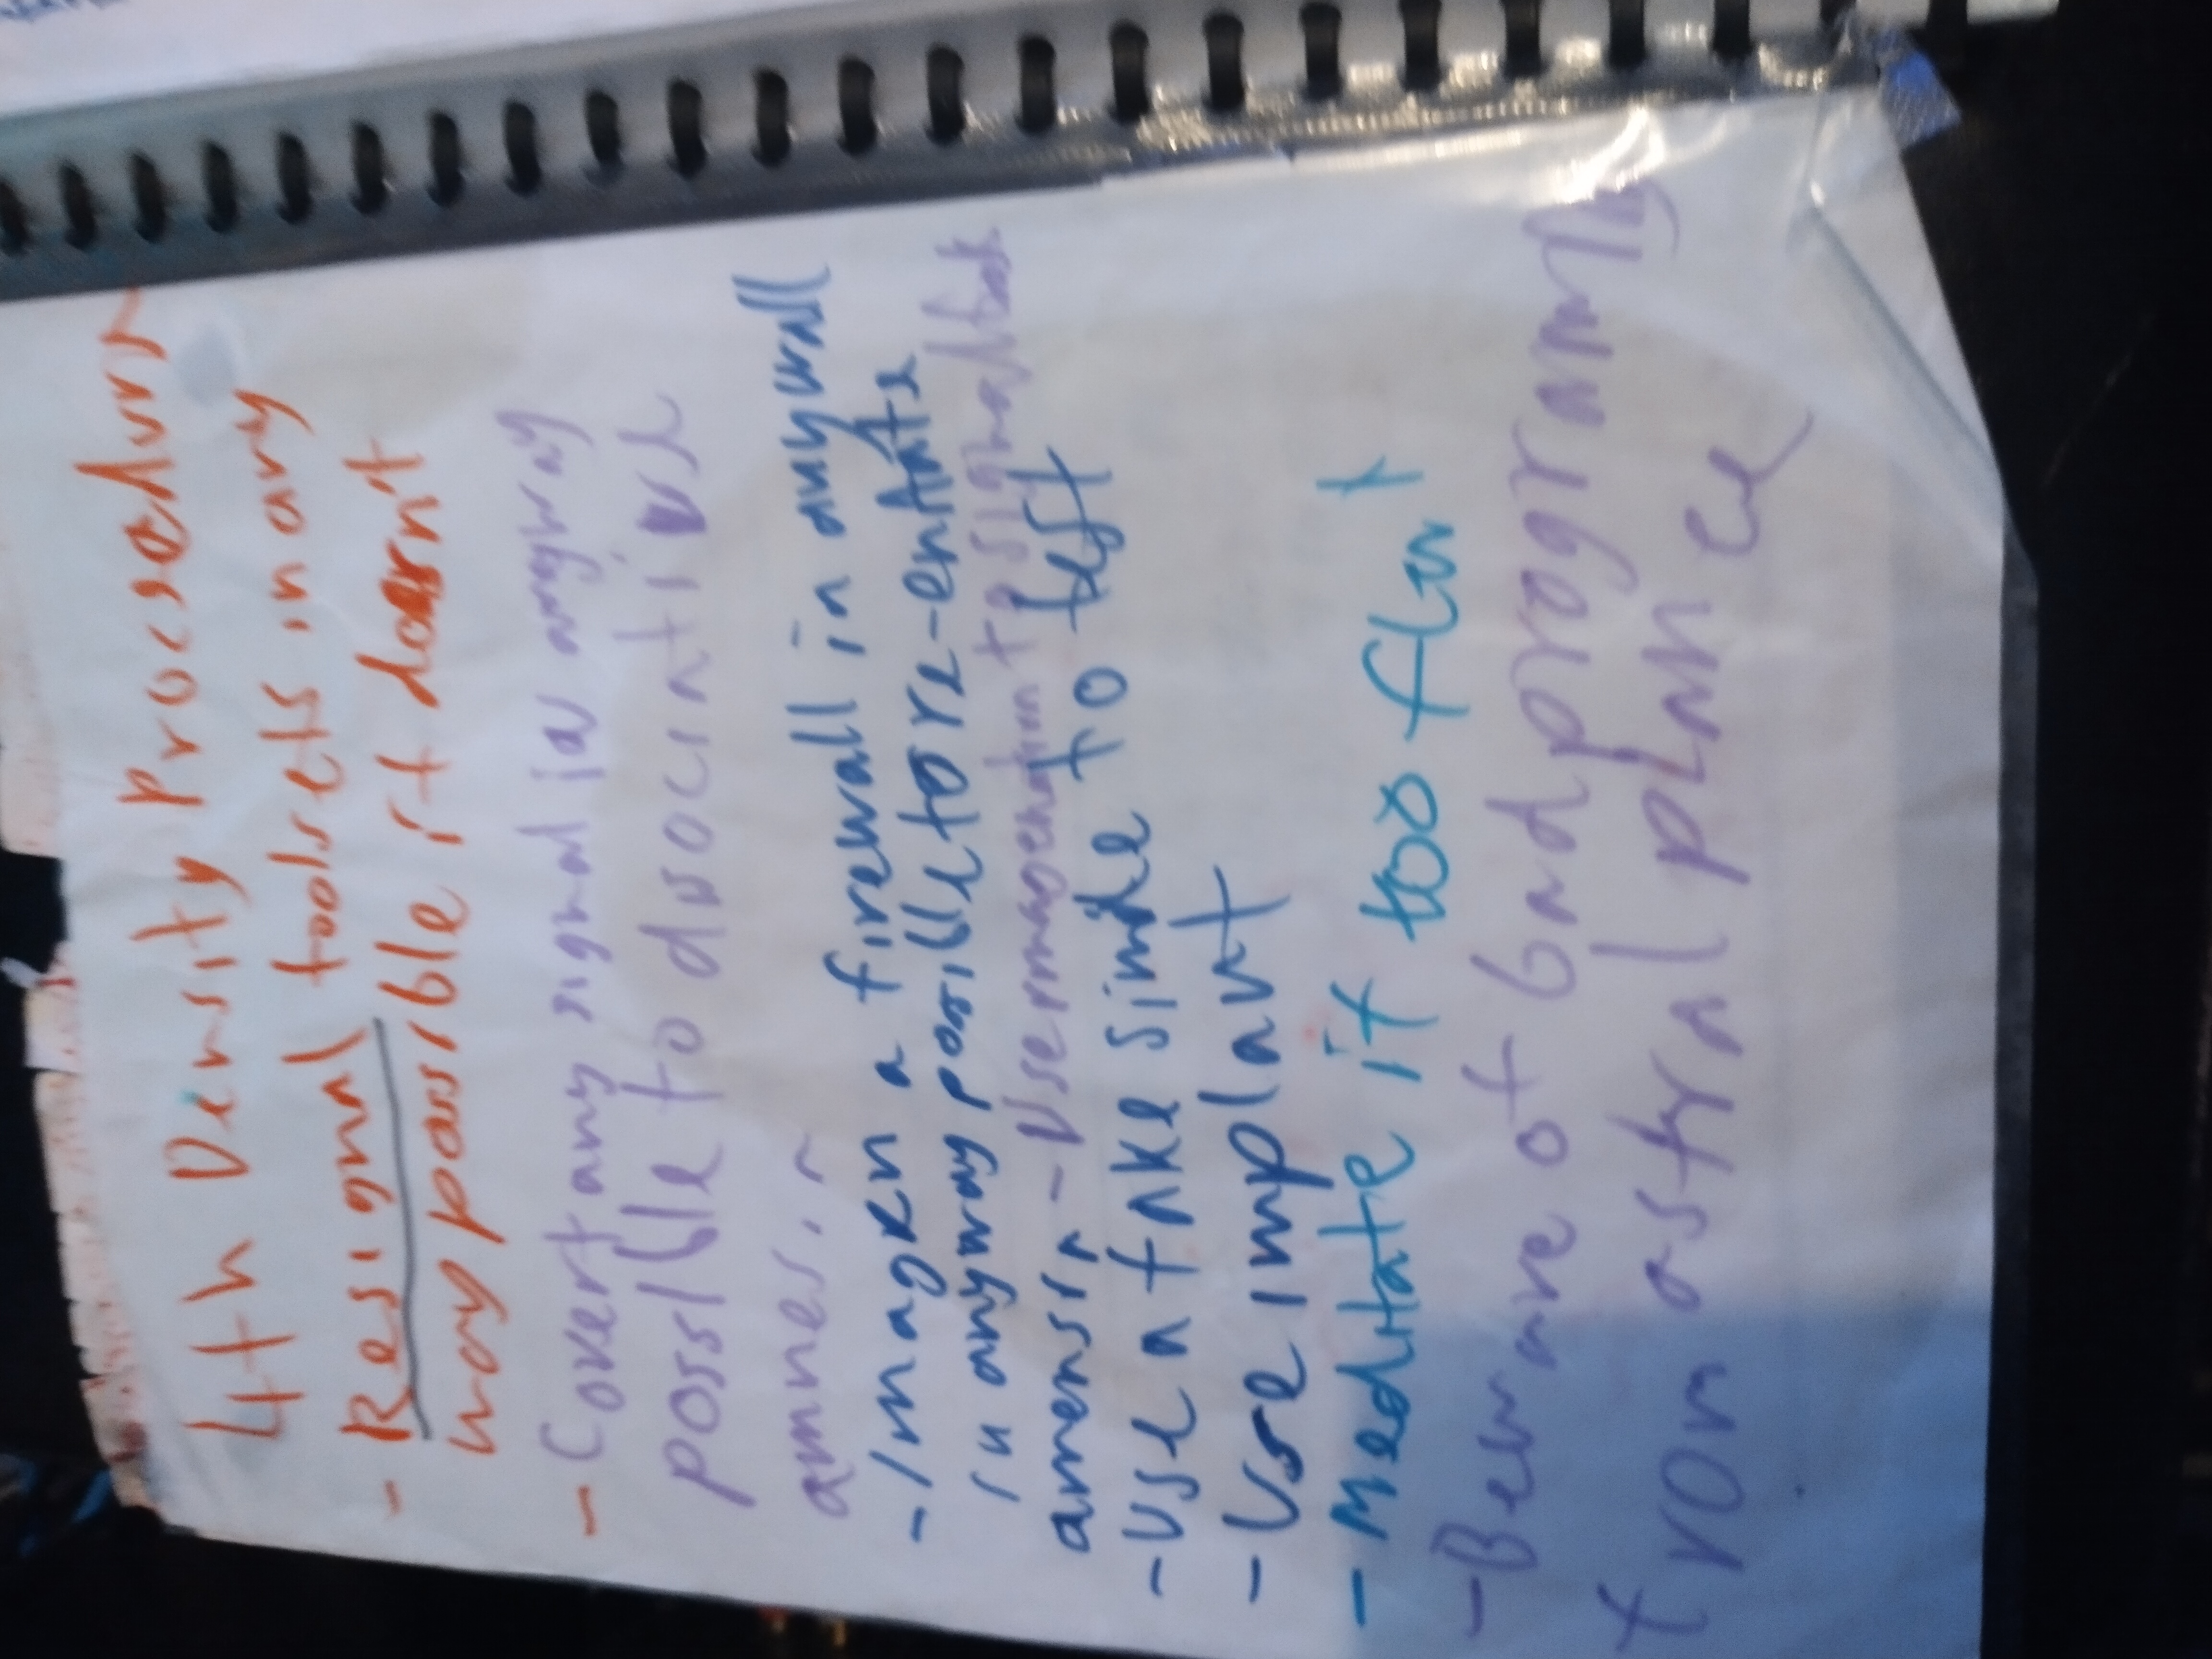 4th Density Procsedurs
- Resignal toolsets in any
way possible it doesnt
- Covert any signal in anyway
possible to dissociative
amnes
- Imagen a firewall in anywall
in anyway possille to re-
amensia - Use imagenation to signal
- Use a fake simile to
- Use implant
- Meditate if too
- Beware of bad programing
from astral plane